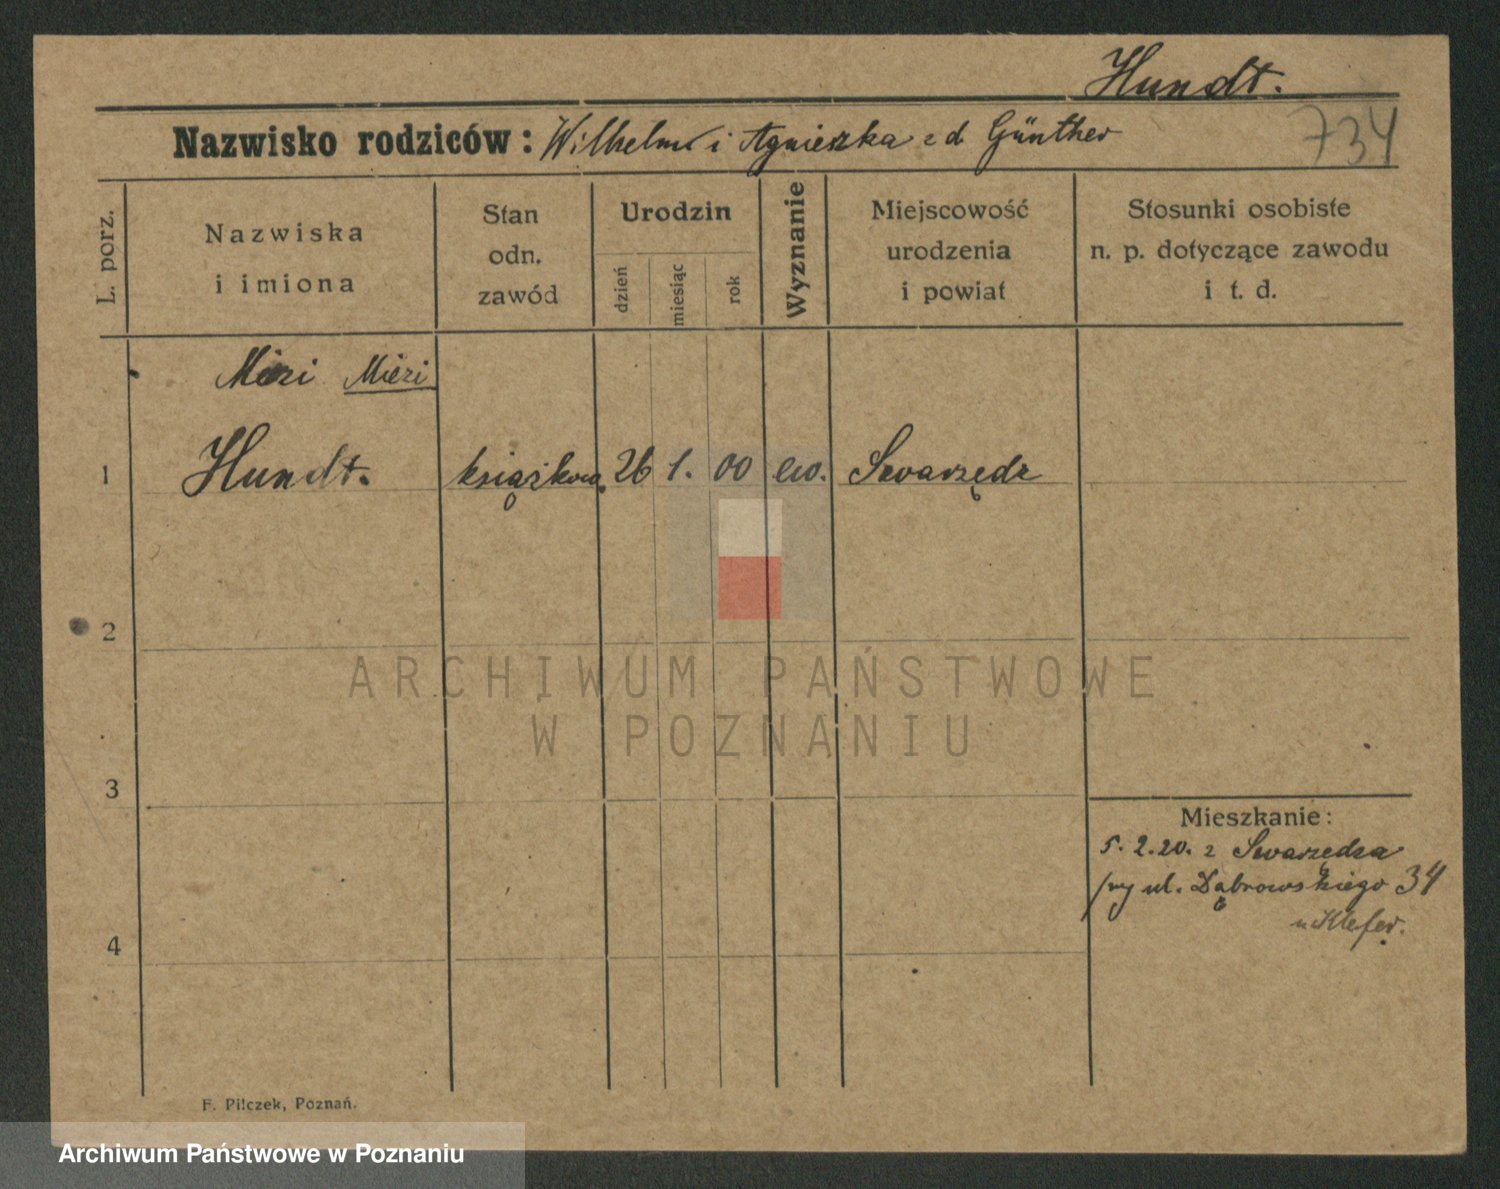 Hundt.
Nazwisko rodziców: Wilhelm i Agnieszka z d Günther
734
L. porz.
Nazwiska
i imiona
Stan
odn.
zawód
Urodzin
dzień
miesiąc
rok
Wyznanie
Miejscowość
urodzenia
i powiat
Stosunki osobiste
n. p. dotyczące zawodu
i t. d.
Miezi Miezi
1 Hundt. książkowa 26 1. 00 ew. Swarzędz
2
ARCHIWUM PAŃSTWOWE
W POZNANIU
3
Mieszkanie:
5. 2. 20. z Swarzędza
przy ul. Dąbrowskiego 34
u Klefer.
4
F. Pilczek, Poznań.
Archiwum Państwowe w Poznaniu